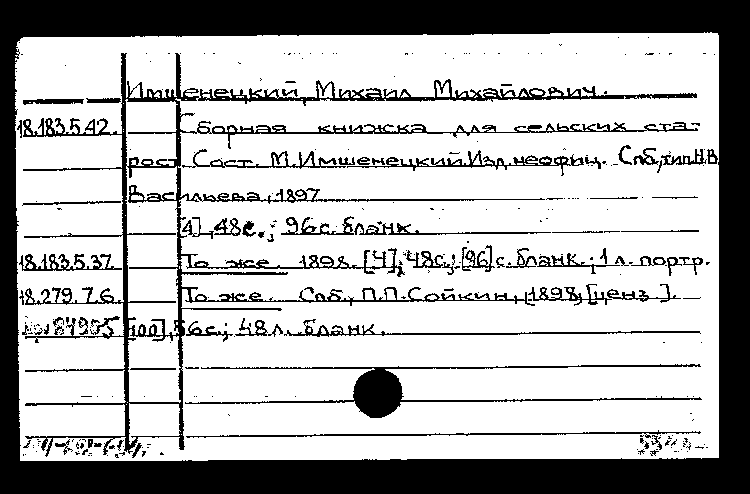 Имшенецкий, Михаил Михайлович.
18.183.5.42. Сборная книжка для сельских ста-
рост Сост. М.Имшенецкий.Изд.неофиц. Спб,тип.Н.В.
Васильева, 1897
[4], 48с.; 96с. бланк.
18.183.5.37. То же. 1898. [4], 48с.; [96]с. бланк.; 1 л. портр.
18.279.7.6. То же. Спб., П.П.Сойкин, [1898, [ценз ].
84905 56с.; 48л. бланк.